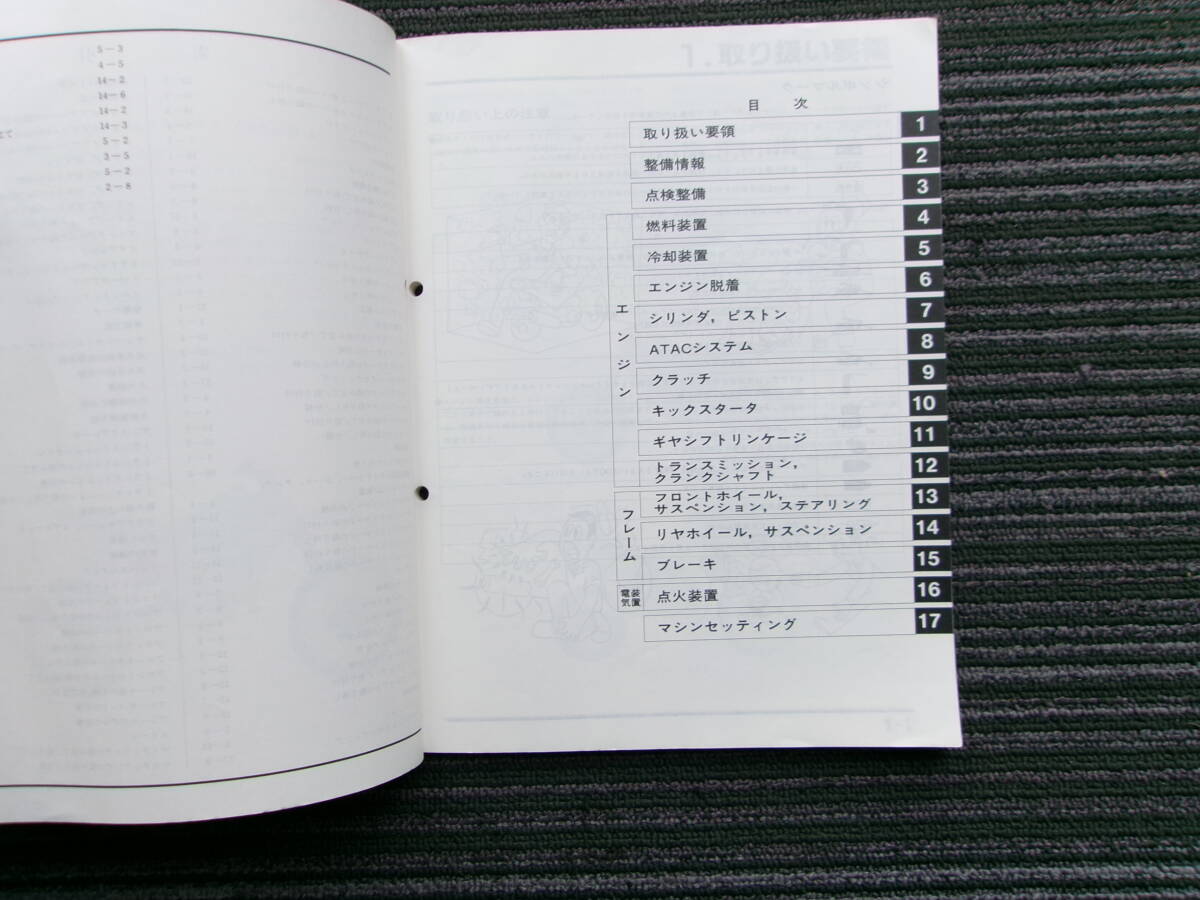 5-3
4-5
14-2
14-6
14-2
14-3
5-2
3-5
5-2
2-8
目 次
取り扱い要領 1
整備情報 2
点検整備 3
エンジン
燃料装置 4
冷却装置 5
エンジン脱着 6
シリンダ，ピストン 7
ATACシステム 8
クラッチ 9
キックスタータ 10
ギヤシフトリンケージ 11
トランスミッション，
クランクシャフト 12
フレーム
フロントホイール，
サスペンション，ステアリング 13
リヤホイール，サスペンション 14
ブレーキ 15
電装
気置
点火装置 16
マシンセッティング 17